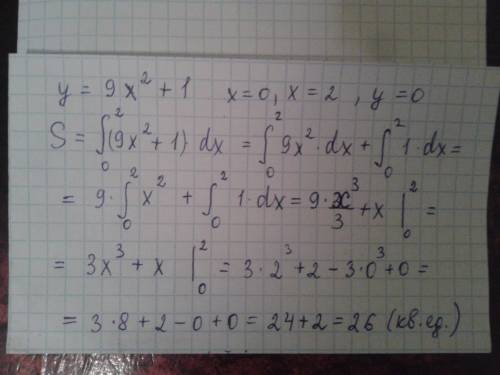 y = 9x² + 1   x=0, x=2 , y=0
S = ∫₀² (9x² + 1) dx = ∫₀² 9x² · dx + ∫₀² 1 · dx =
= 9 · ∫₀² x² + ∫₀² 1 · dx = 9 · x³/3 + x |₀² =
= 3x³ + x |₀² = 3 · 2³ + 2 − 3 · 0³ + 0 =
= 3 · 8 + 2 − 0 + 0 = 24 + 2 = 26 (кв. ед.)